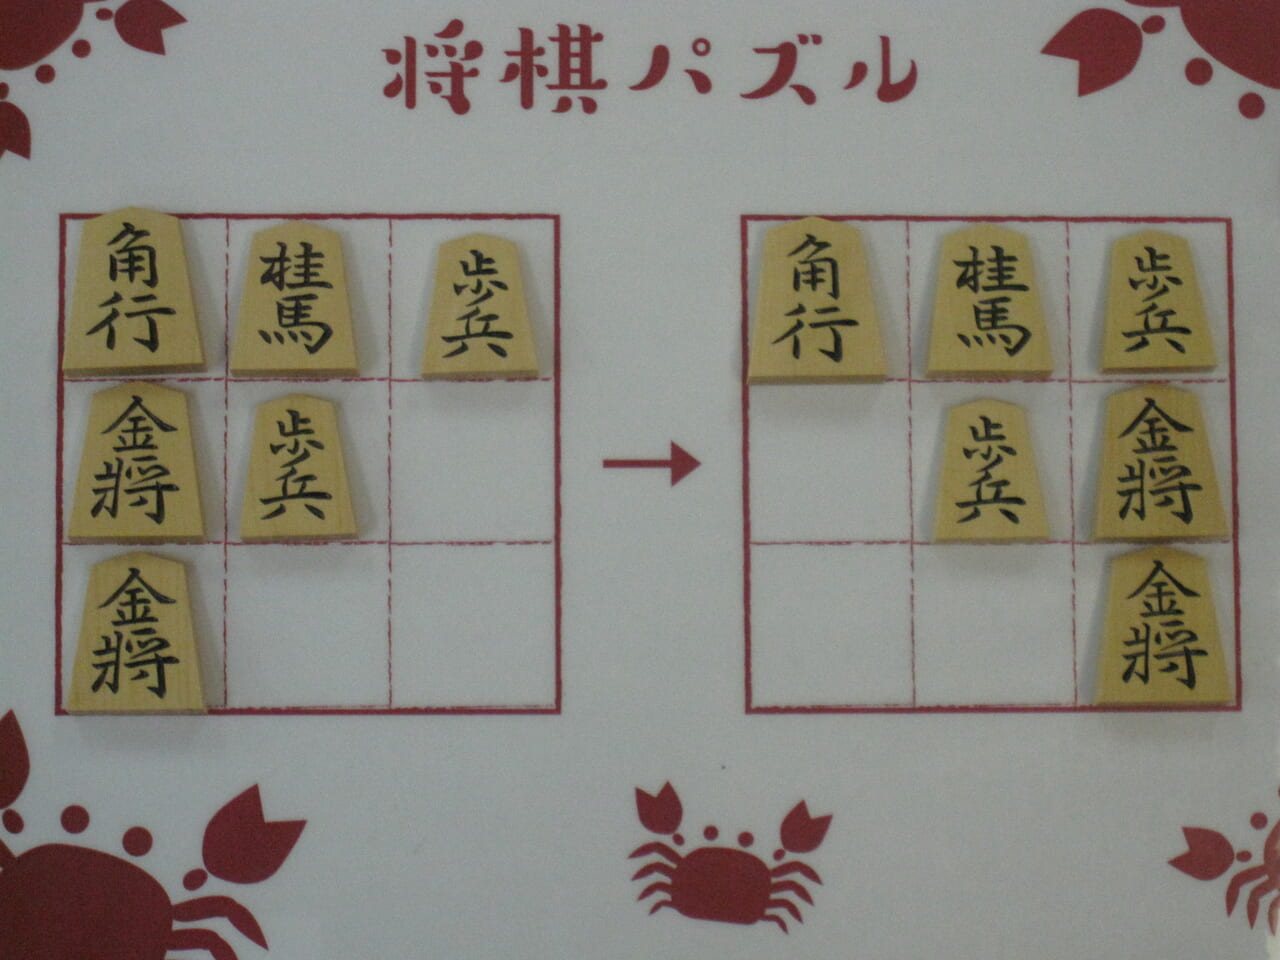 将棋パズル
角行 桂馬 歩兵
金将 歩兵
金将
角行 桂馬 歩兵
歩兵 金将
金将